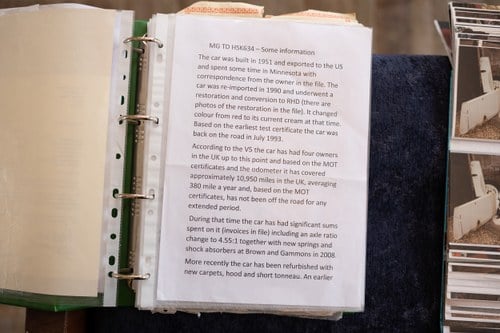 MG TD HSK634 – Some information
The car was built in 1951 and exported to the US
and spent some time in Minnesota with
correspondence from the owner in the file. The
car was re-imported in 1990 and underwent a
restoration and conversion to RHD (there are
photos of the restoration in the file). It changed
colour from red to its current cream at that time.
Based on the earliest test certificate the car was
back on the road in July 1993.
According to the V5 the car has had four owners
in the UK up to this point and based on the MOT
certificates and the odometer it has covered
approximately 10,950 miles in the UK, averaging
380 mile a year and, based on the MOT
certificates, has not been off the road for any
extended period.
During that time the car has had significant sums
spent on it (invoices in file) including an axle ratio
change to 4.55:1 together with new springs and
shock absorbers at Brown and Gammons in 2008.
More recently the car has been refurbished with
new carpets, hood and short tonneau. An earlier